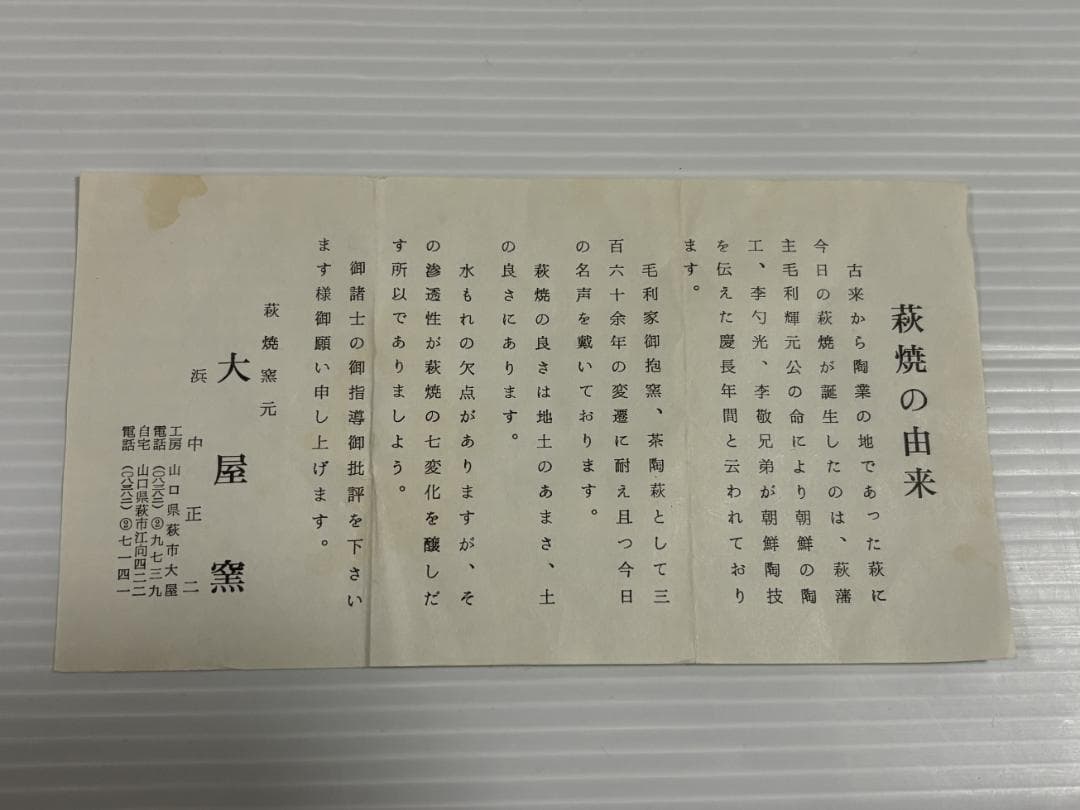 萩焼の由来
古来から陶業の地であった萩に
今日の萩焼が誕生したのは、萩藩
主毛利輝元公の命により朝鮮の陶
工、李勺光、李敬兄弟が朝鮮陶技
を伝えた慶長年間と云われており
ます。
毛利家御抱窯、茶陶萩として三
百六十余年の変遷に耐え且つ今日
の名声を戴いております。
萩焼の良さは地土のあまさ、土
の良さにあります。
水もれの欠点がありますが、そ
の滲透性が萩焼の七変化を醸しだ
す所以でありましよう。
御諸士の御指導御批評を下さい
ます様御願い申し上げます。
萩焼窯元
大屋窯
浜中正二
工房 山口県萩市大屋
電話 (〇八三八二)②九七三九
自宅 山口県萩市江向四二二
電話 (〇八三八二)②七一四一